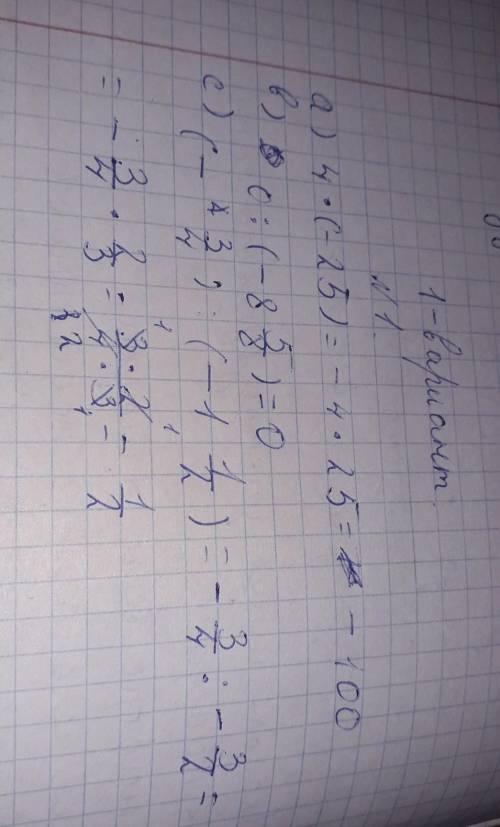 1-вариант.
№1.
а) 4·(-25)=-4·25= -100
в) 0:(-8 5/8)=0
с) (-3/4):(-1 1/2)=-3/4:-3/2=
=-3/4·2/3=3·2/4·3=1/2